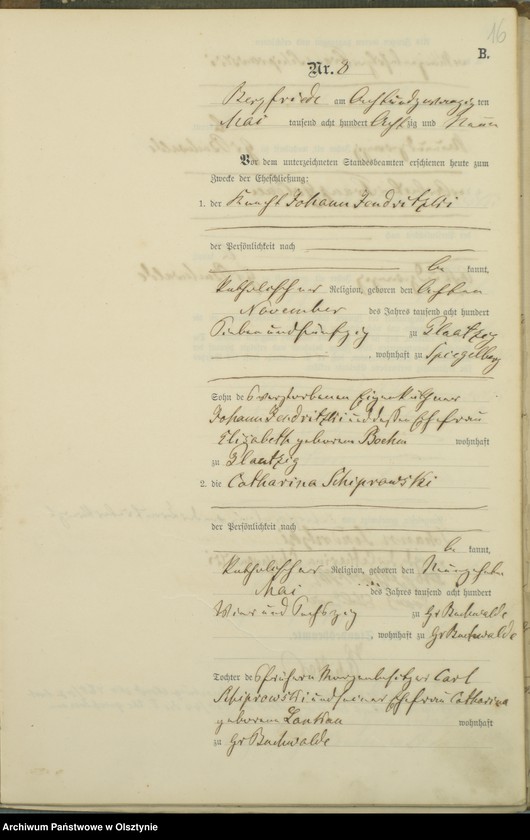 16
B.
Nr. 8
Bergfriede am Achtundzwanzig ten
Mai tausend acht hundert Acht zig und Neun
Vor dem unterzeichneten Standesbeamten erschienen heute zum
Zwecke der Eheschließung:
1. der Knecht Johann Jendritzki
der Persönlichkeit nach
be kannt,
katholischer Religion, geboren den Achten
November des Jahres tausend acht hundert
Siebenundfünfzig zu Plautzig
, wohnhaft zu Spiegelberg
Sohn des verstorbenen Eigenkäthner
Johann Jendritzki und dessen Ehefrau
Elisabeth geborenen Boehm wohnhaft
zu Plautzig
2. die Catharina Schiprowski
der Persönlichkeit nach
be kannt,
katholischer Religion, geboren den Neunzehnten
Mai des Jahres tausend acht hundert
Vier und Sechszig zu Gr Buchwalde
, wohnhaft zu Gr Buchwalde
Tochter des frühern Morgenbesitzer Carl
Schiprowski und seiner Ehefrau Catharina
geborenen Lankau wohnhaft
zu Gr Buchwalde
Archiwum Państwowe w Olsztynie